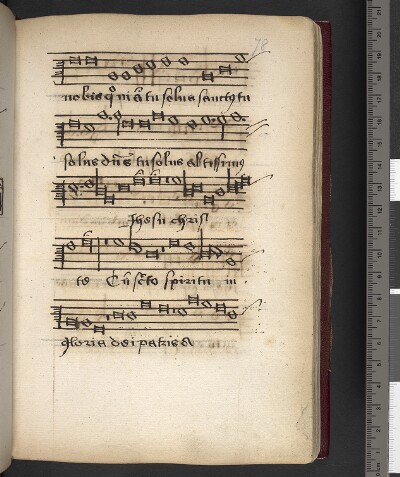 78
nobis q̄m̄ tu solus sanctus tu
solus dn̄s tu solus altissimus
Jhesu chris
te Cū sc̄to spiritu in
gloria dei patris A